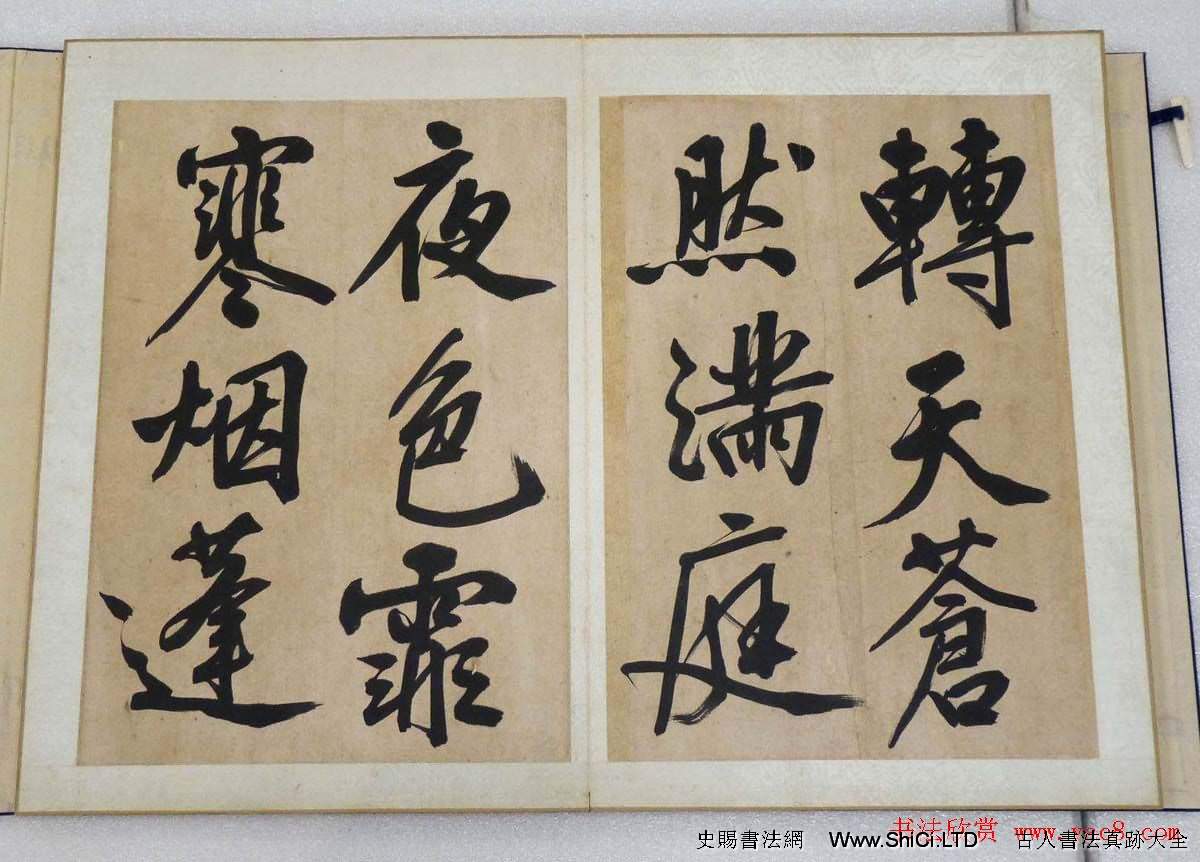 轉天蒼
然滿庭
夜色霏
寒烟蓬
书法欣赏 www.yac8.com
史賜書法網 Www.ShiCi.LTD 古人書法真跡大全